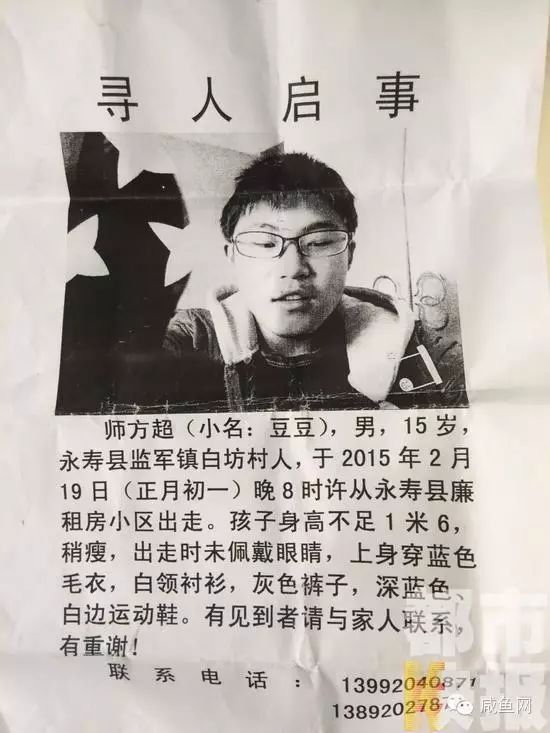 寻人启事
师方超（小名：豆豆），男，15岁，
永寿县监军镇白坊村人，于2015年2月
19日（正月初一）晚8时许从永寿县廉
租房小区出走。孩子身高不足1米6，
稍瘦，出走时未佩戴眼睛，上身穿蓝色
毛衣，白领衬衫，灰色裤子，深蓝色、
白边运动鞋。有见到者请与家人联系，
有重谢！
联系电话：13992040871
都市快报
咸鱼网